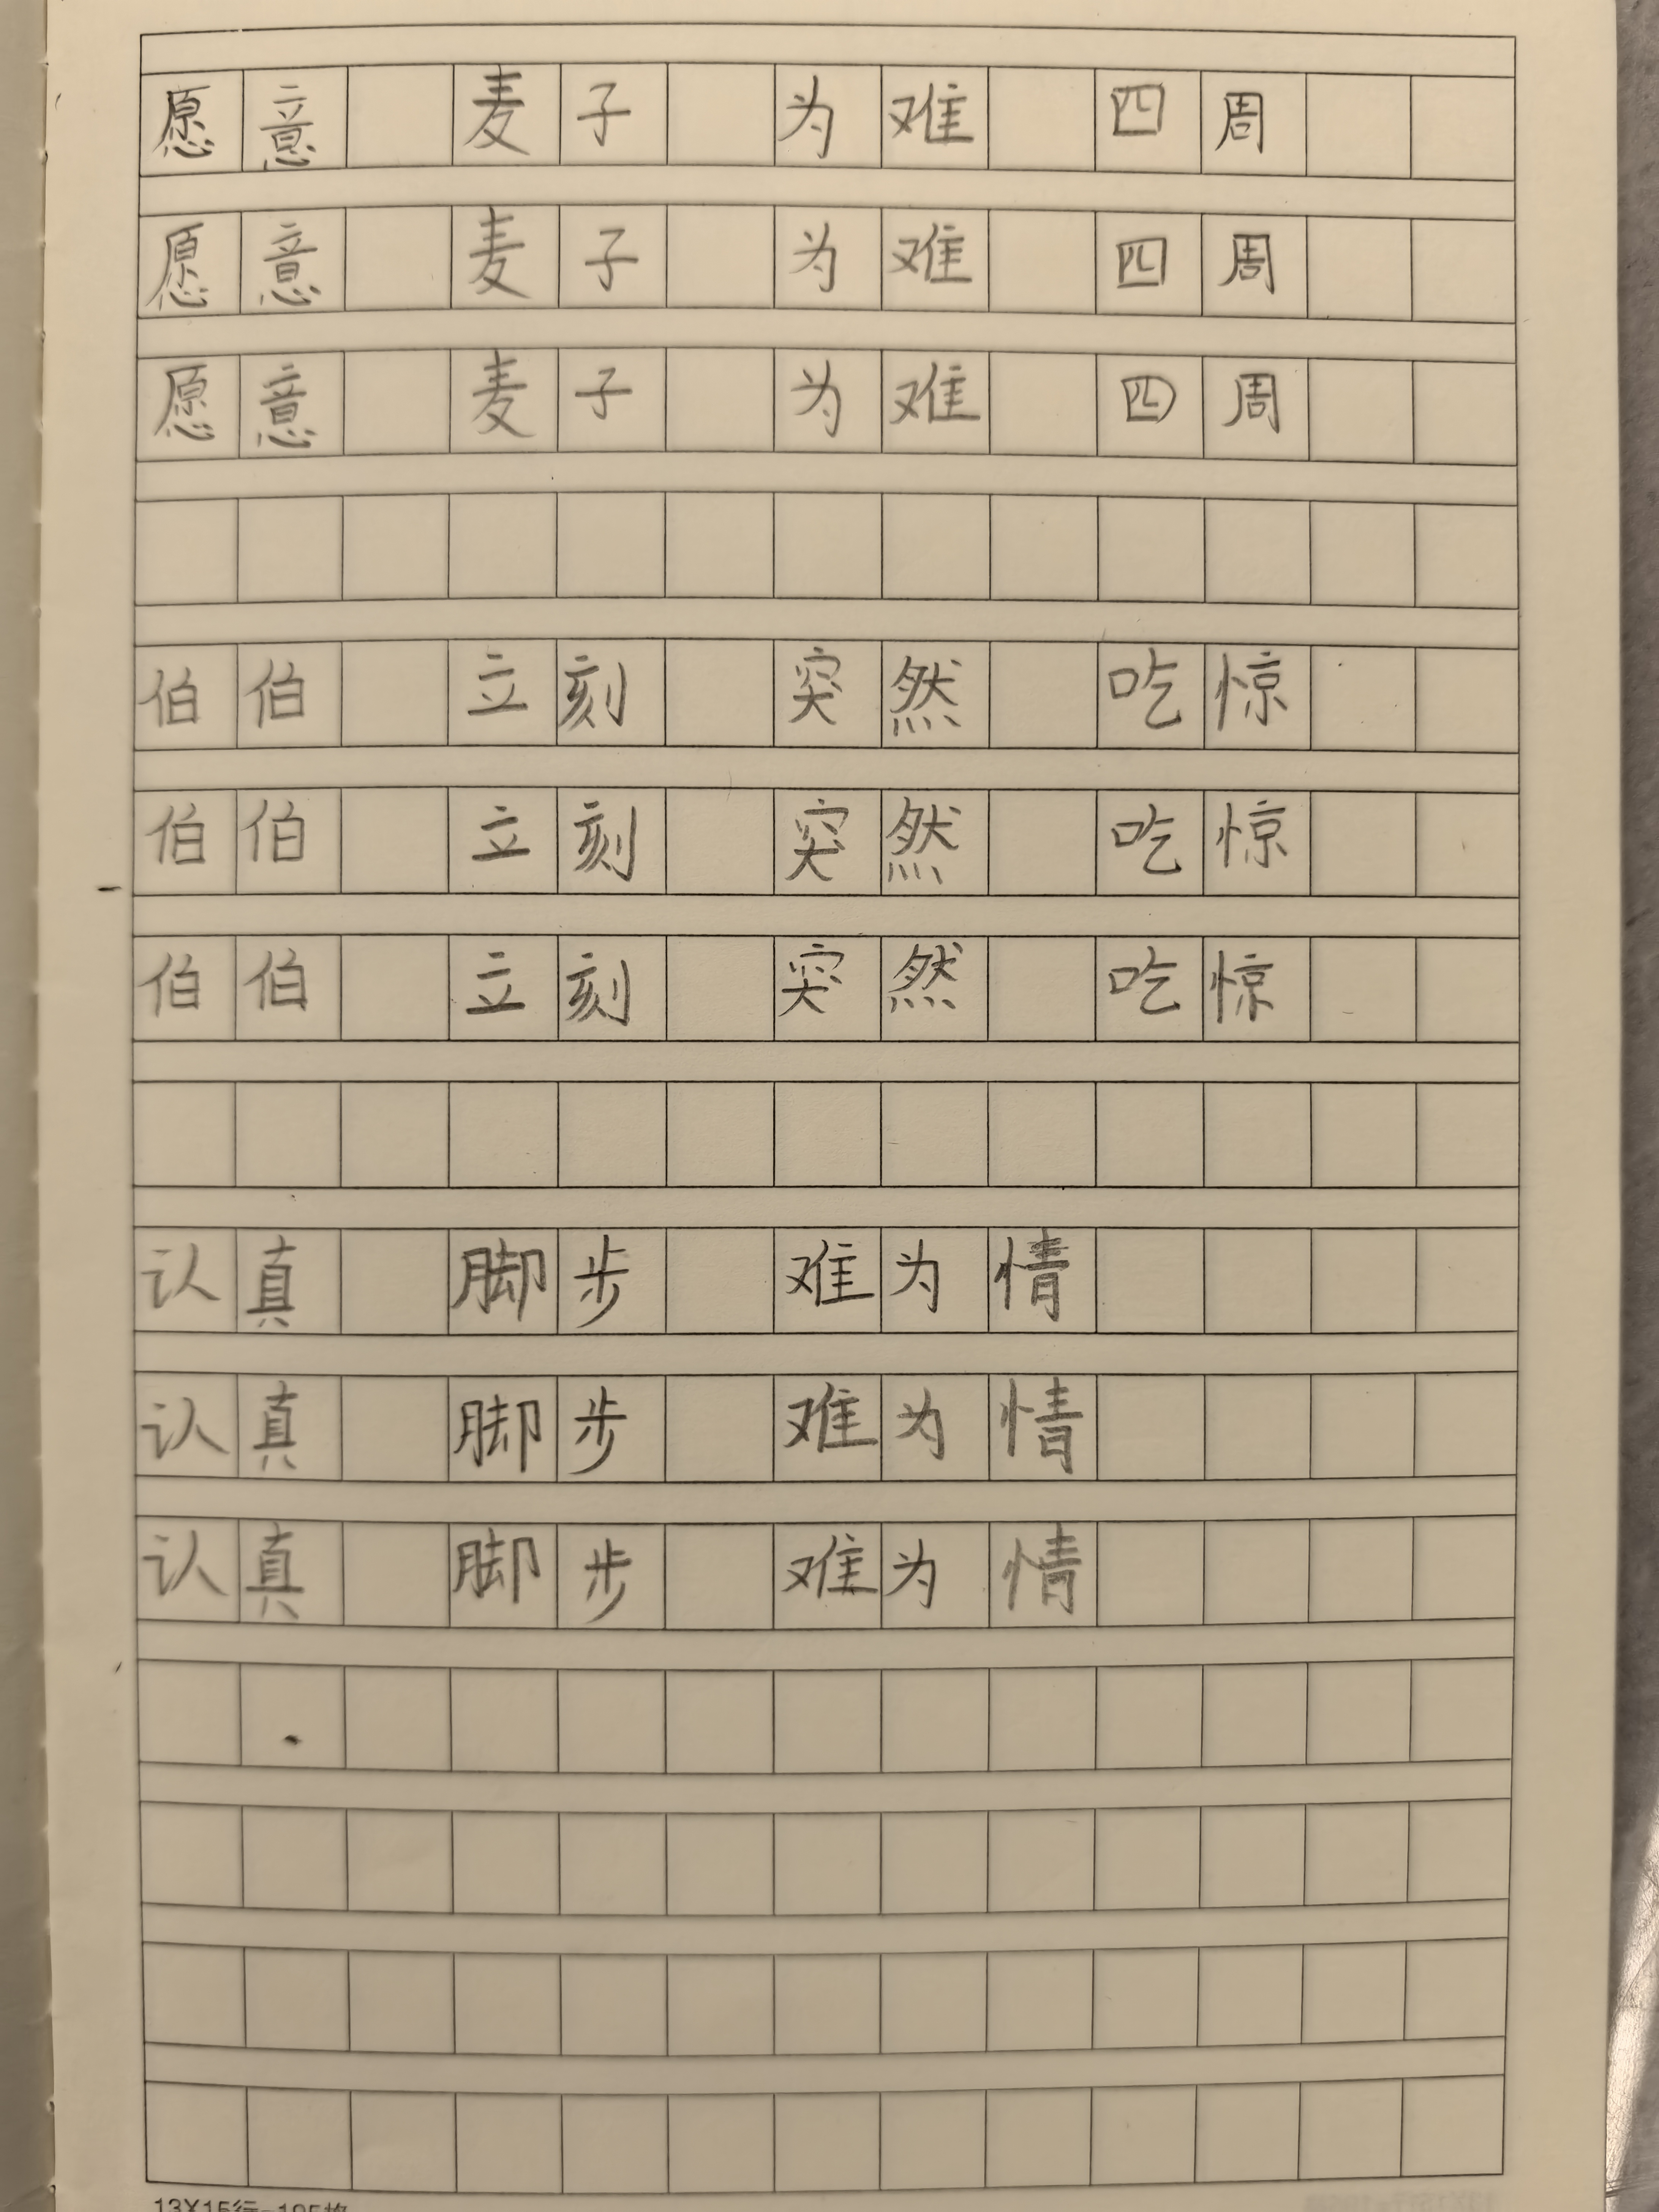 愿意 麦子 为难 四周
愿意 麦子 为难 四周
愿意 麦子 为难 四周
伯伯 立刻 突然 吃惊
伯伯 立刻 突然 吃惊
伯伯 立刻 突然 吃惊
认真 脚步 难为情
认真 脚步 难为情
认真 脚步 难为情
13X15行=195格